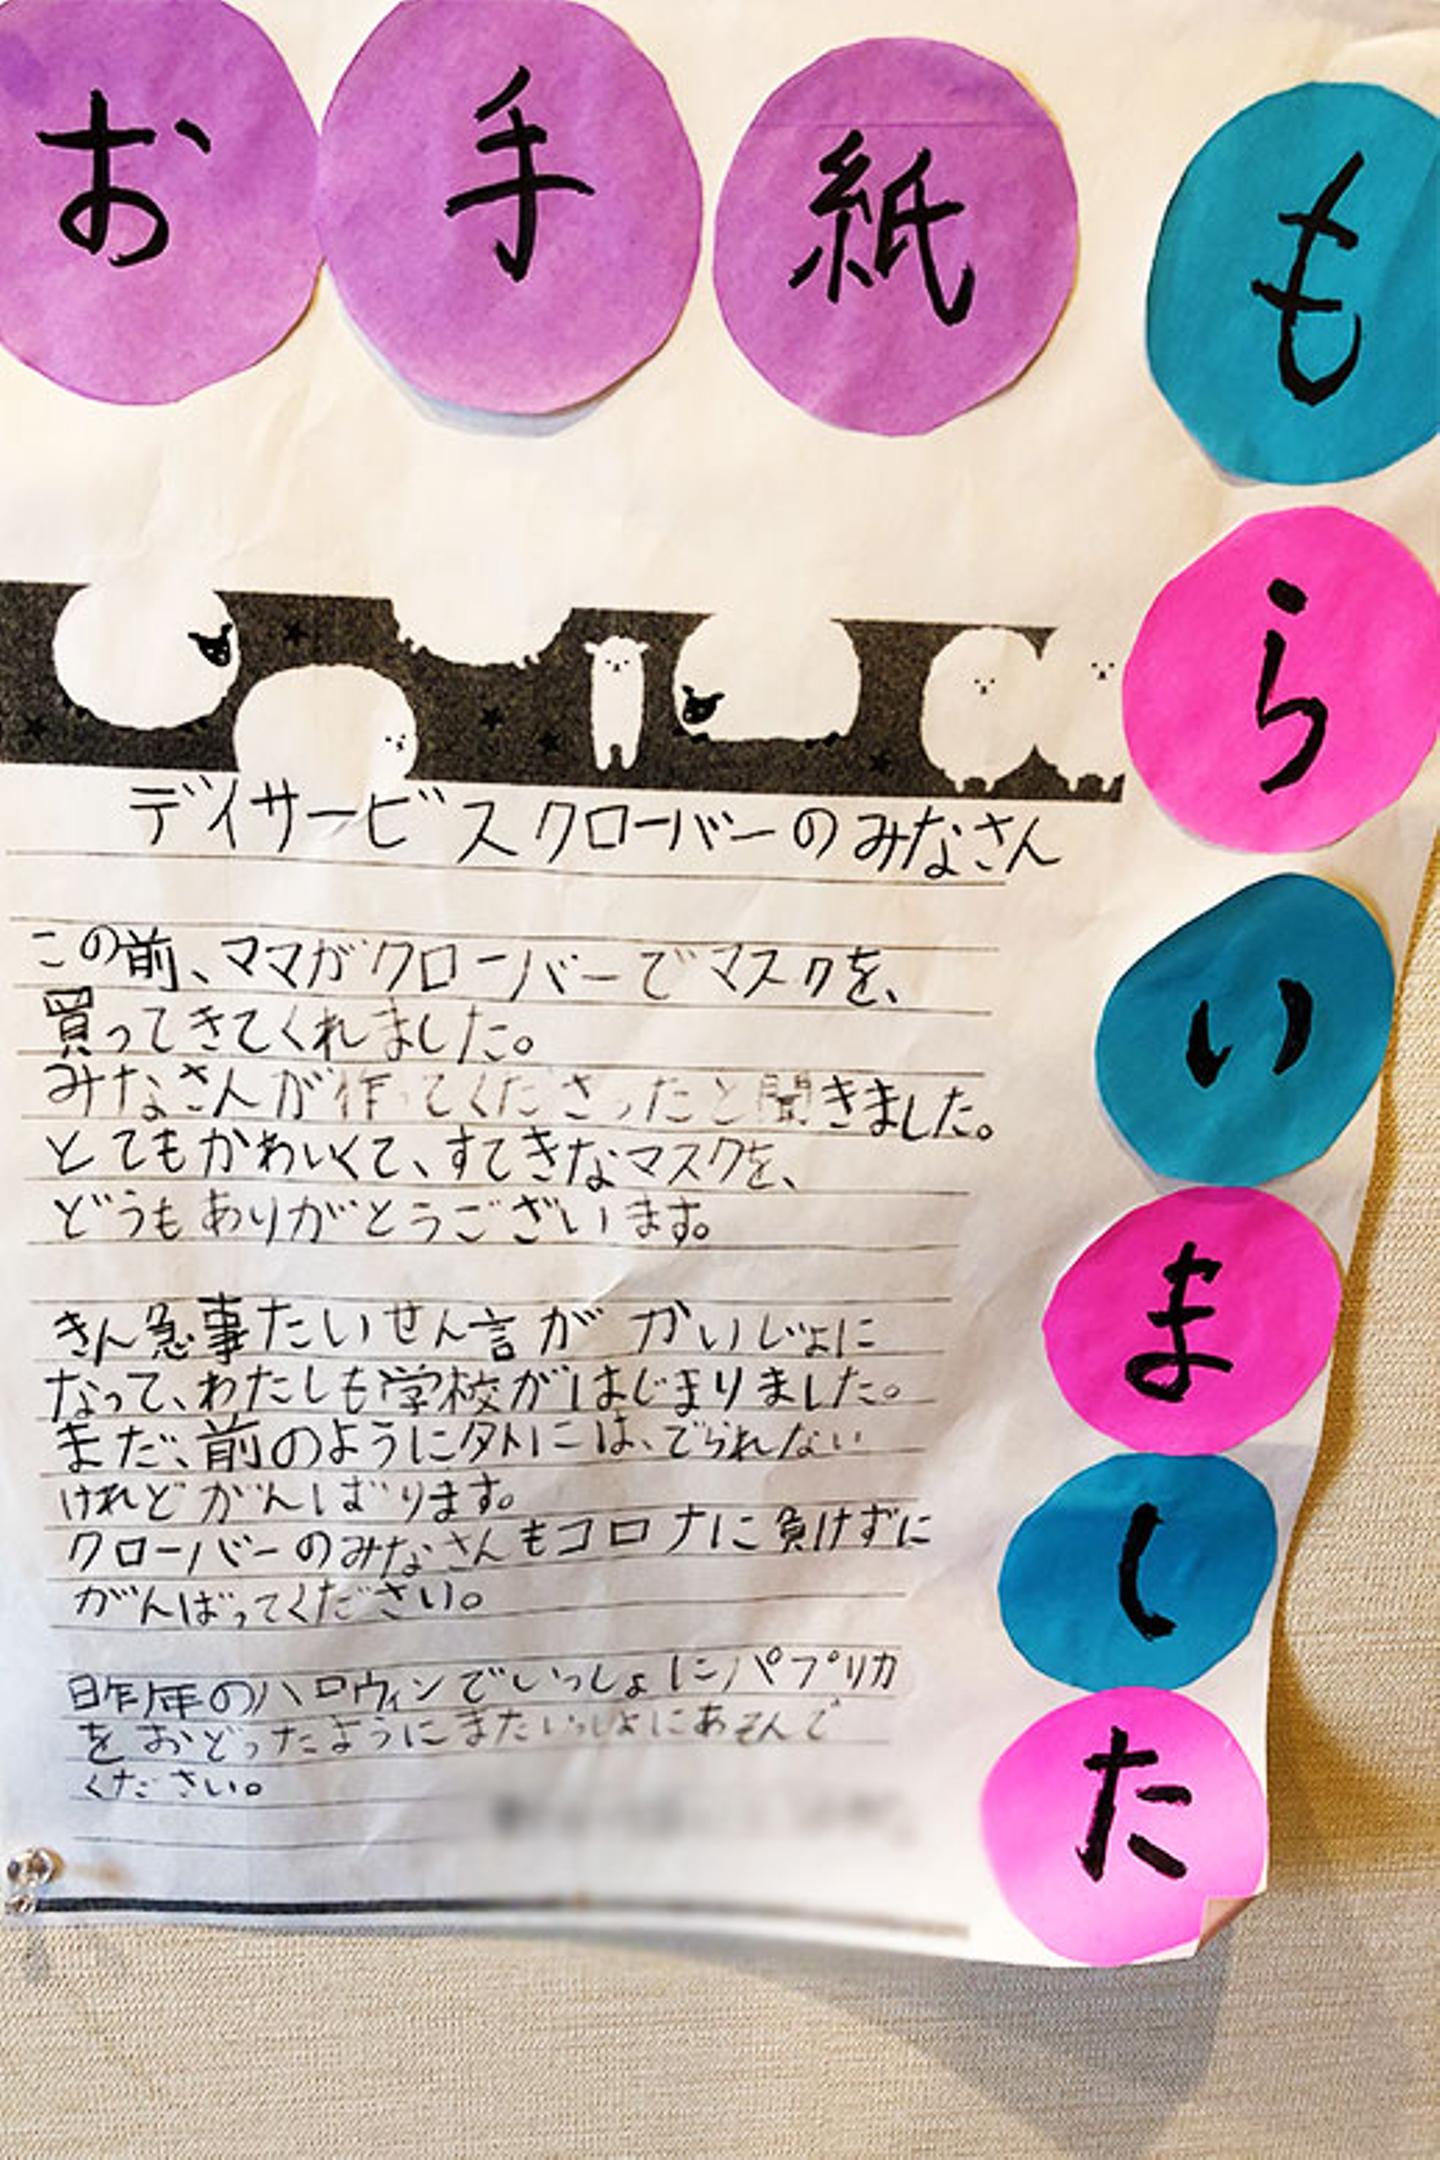 お手紙
もらいました
デイサービスクローバーのみなさん
この前、ママがクローバーでマスクを、
買ってきてくれました。
みなさんが作ってくださったと聞きました。
とてもかわいくて、すてきなマスクを、
どうもありがとうございます。
きん急事たいせん言が かいじょに
なって、わたしも学校がはじまりました。
まだ、前のように外には、でられない
けれどがんばります。
クローバーのみなさんもコロナに負けずに
がんばってください。
昨年のハロウィンでいっしょにパプリカ
をおどったようにまたいっしょにあそんで
ください。